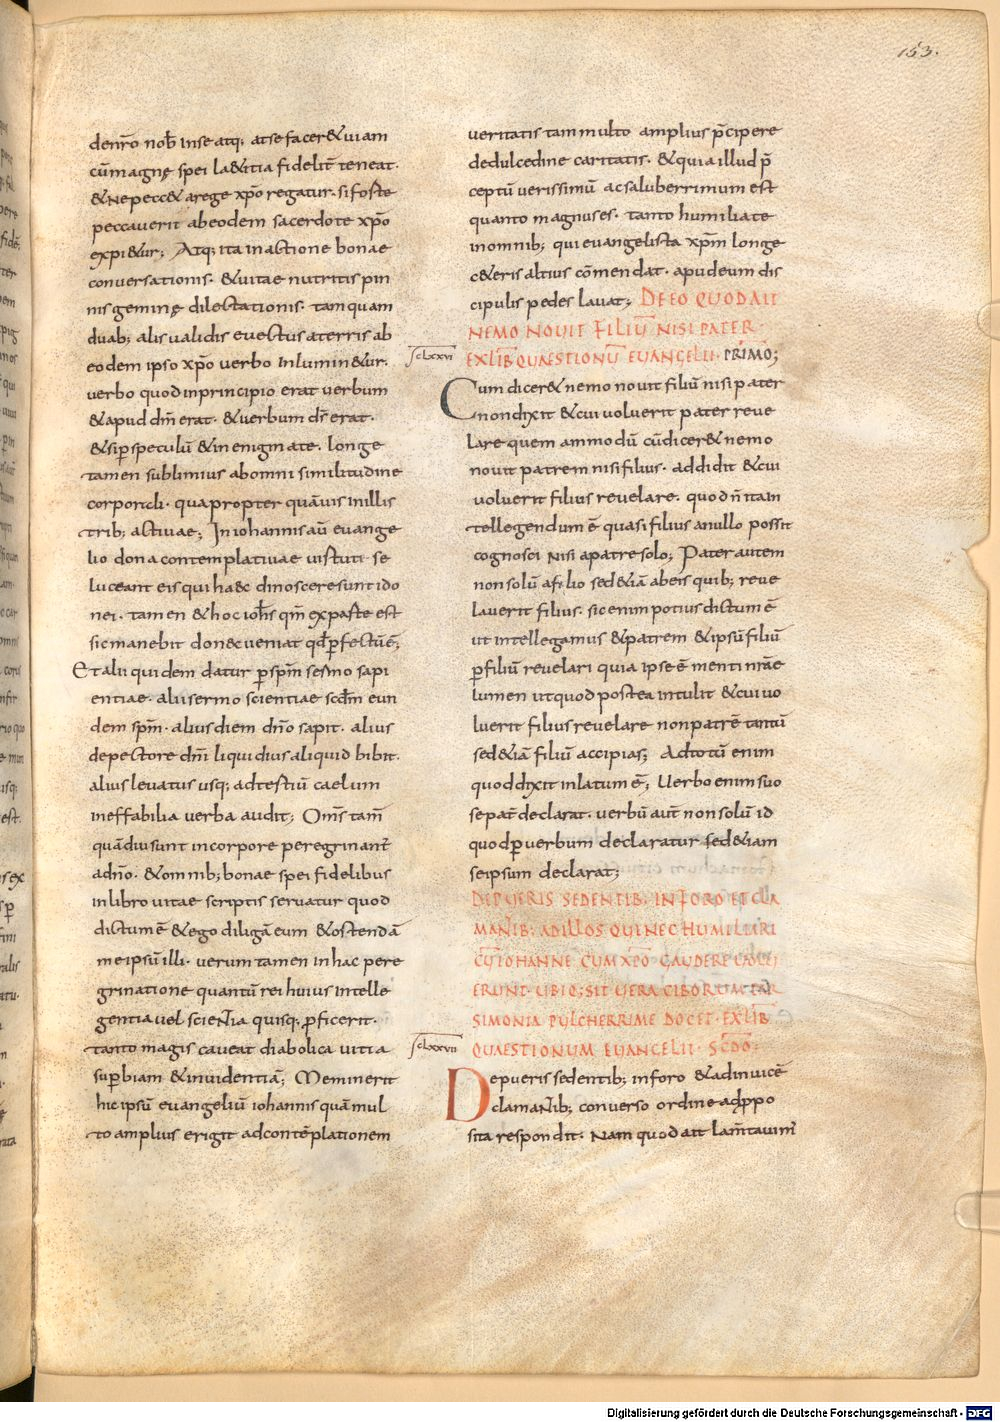 153.
denr̄o nob̄ inse atq; at se facer& uiam
cū magnę spei la&itia fidelit̄ teneat.
& Ne pecc& a rege xp̄o regatur. si forte
peccauerit ab eodem sacerdote xp̄o
expi&ur; Atq; ita in actione bonae
conuersationis. & uitae nutritis pin
nis geminę dilectationis. tamquam
duab; alis ualidis euectus a terris ab
eodem ipso xp̄o uerbo Inlumin&ur.
uerbo quod inprincipio erat uerbum
& apud dm̄ erat. & uerbum dr̄ erat.
& si p̄ speculū & in enigmate. longe
tamen sublimius ab omni similitudine
corporali. quapropter quāuis inillis
trib; actiuae; In iohannis aū euange
lio dona contemplatiuae uirtuti se
luceant eis qui haec dinoscere sunt ido
nei. tamen & hoc ioh̄s qm̄ ex parte est
sic manebit donec ueniat qd̄ p̄fectū ē;
Et alii quidem datur p̄ spm̄ sermo sapi
entiae. alii sermo scientiae scd̄m eun
dem spm̄. alius diem dn̄o sapit. alius
de pectore dn̄i liquidius aliquid bibit.
alius leuatus usq; ad tertiū caelum
ineffabilia uerba audit; Om̄s tam̄
quādiu sunt in corpore peregrinant̄
a dn̄o. & omnib; bonae spei fidelibus
in libro uitae scriptis seruatur quod
dictum ē & ego diligā eum & ostendā
me ipsū illi. uerum tamen in hac pere
grinatione quantū rei huius intelle
gentia uel scientia quisq; p̄ficerit.
tanto magis caueat diabolica uitia
sup̄biam & inuidentiā; Meminerit
hic ipsū euangeliū iohannis quā mul
to amplius erigit ad contēplationem
ueritatis tam multo amplius p̄cipere
de dulcedine caritatis. & quia illud p̄
ceptū uerissimū ac saluberrimum est
quanto magnus es. tanto humilia te
in omnib; qui euangelista xp̄m longe
c&eris altius cōmendat. apud eum dis
cipulis pedes lauat; DE EO QUOD AIT
NEMO NOUIT FILIŪ NISI PATER.
EX LIB̄ QUAESTIONŪ EUANGELII. PRIMO;
sclxxvi
Cum dicer& nemo nouit filiū nisi pater
non dixit & cui uoluerit pater reue
lare quem ammodū cū dicer& nemo
nouit patrem nisi filius. addidit & cui
uoluerit filius reuelare. quod n̄ ita in
tellegendum ē quasi filius a nullo possit
cognosci Nisi a patre solo; Pater autem
non solū a filio sed &iā ab eis quib; reue
lauerit filius. sic enim potius dictum ē
ut intellegamus & patrem & ipsū filiū
p̄ filiū reuelari quia ipse ē menti nr̄ae
lumen ut quod postea intulit & cui uo
luerit filius reuelare non patrē tantū
sed &iā filiū accipias; Ad totū enim
quod dixit inlatum ē; Uerbo enim suo
se pat̄ declarat. uerbū aut̄ non solū id
quod p̄ uerbum declaratur sed &iam
se ipsum declarat;
DE PUERIS SEDENTIB; IN FORO ET CLA
MANTIB; AD ILLOS QUI NEC HUMILIARI
CŪ IOHANNE CUM XP̄O GAUDERE UOLU
ERUNT. UBI Q; SIT UERA CIBORUM PAR
SIMONIA PULCHERRIME DOCET. EX LIB̄
QUAESTIONUM EUANGELII. SCD̄O.
sclxxvii
De pueris sedentib; in foro & ad inuicē
clamantib; conuerso ordine ad p̄po
sita respondit. Nam quod ait lam̄tauim̄
Digitalisierung gefördert durch die Deutsche Forschungsgemeinschaft - DFG